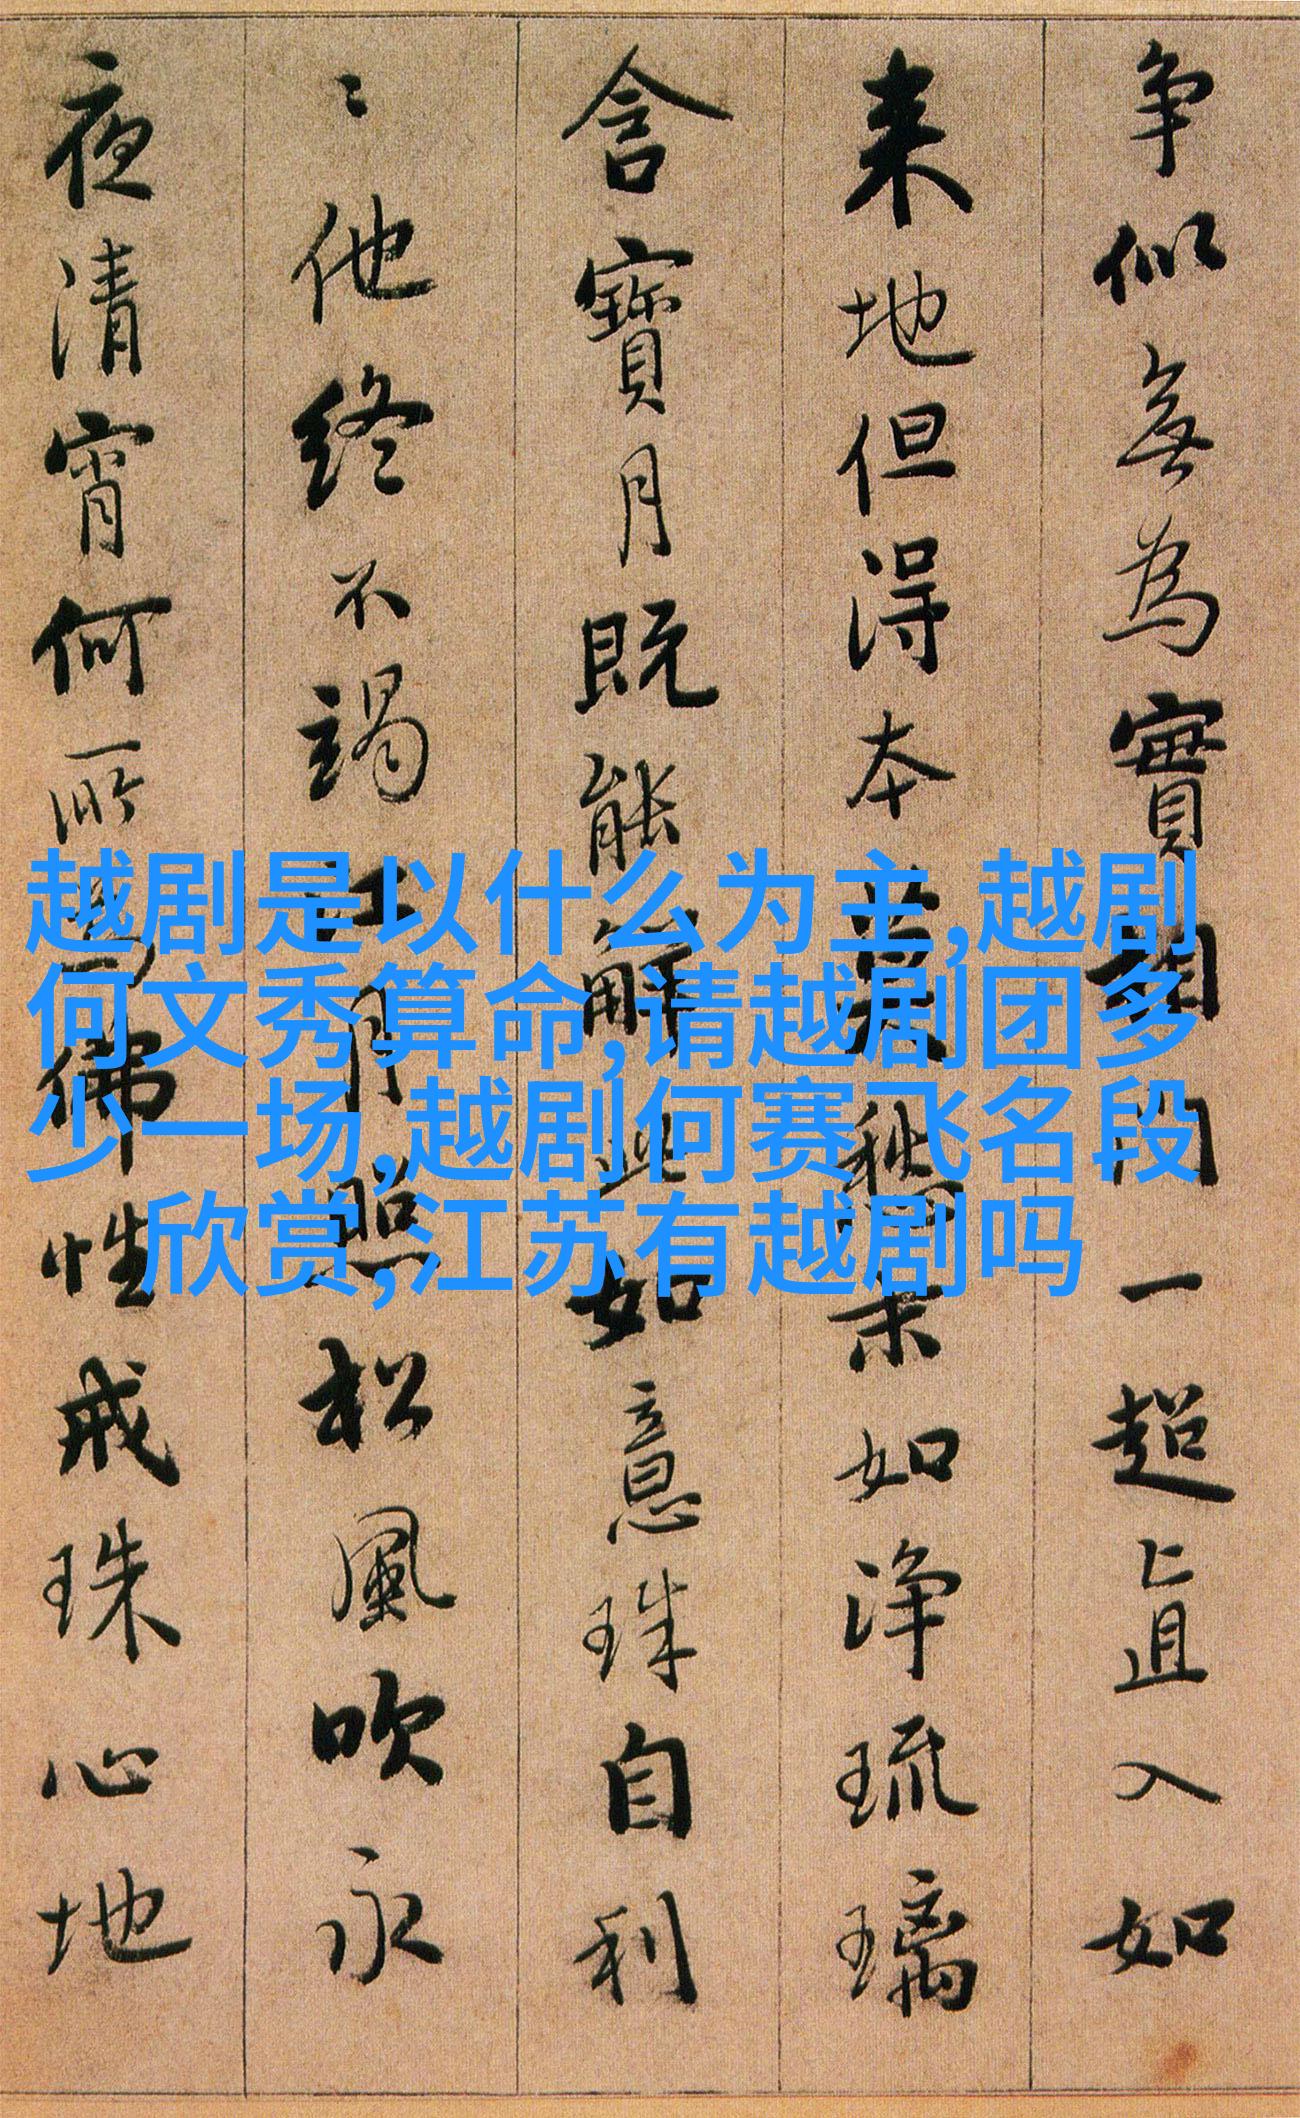 争似無為實相門一超直入如
来地但得本莫愁末如淨琉璃
含寶月既能解此如意珠自利
〻他終不竭江月照松風吹永
夜清宵何所為佛性戒珠心地
越剧是以什么为主,越剧
何文秀算命,请越剧团多
少一场,越剧何赛飞名段
欣赏,江苏有越剧吗